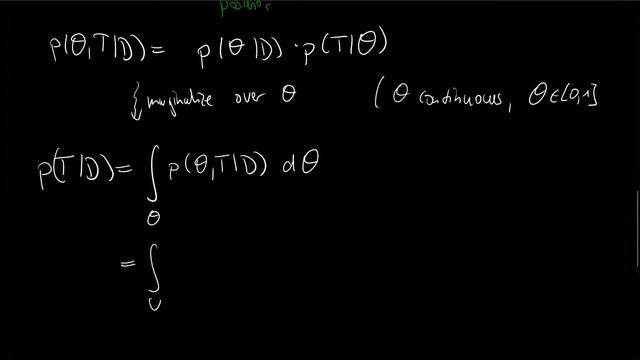 posterior
p(θ,T|D) = p(θ|D) · p(T|θ)
marginalize over θ (θ continuous, θ∈[0,1]
p(T|D) = ∫ p(θ,T|D) dθ
θ
= ∫